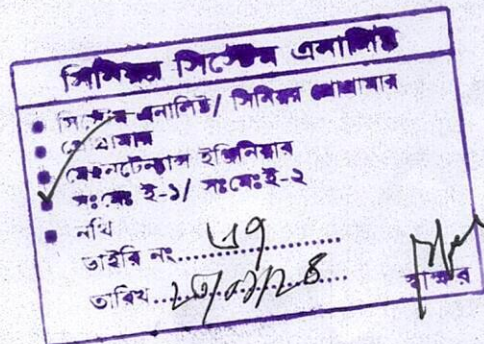 সিনিয়র সিস্টেম এনালিষ্ট
সিস্টেম এনালিষ্ট/ সিনিয়র প্রোগ্রামার
প্রোগ্রামার
মেইনটেন্যান্স ইঞ্জিনিয়ার
সঃমেঃ ই-১/ সঃমেঃ ই-২
নথি
ডাইরি নং..............
তারিখ.................
স্বাক্ষর